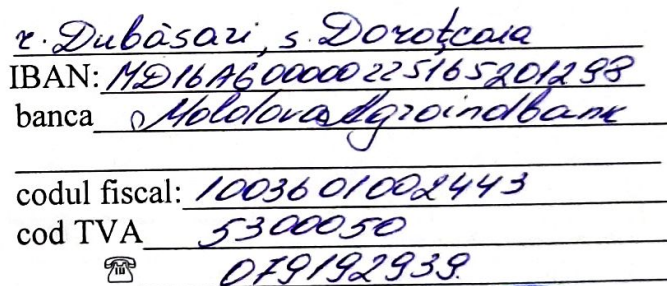 r. Dubăsari, s. Doroțcaia
IBAN: MD16AG00000225165201298
banca Moldova Agroindbank
codul fiscal: 1003601002443
cod TVA 5300050
☎ 079192939.